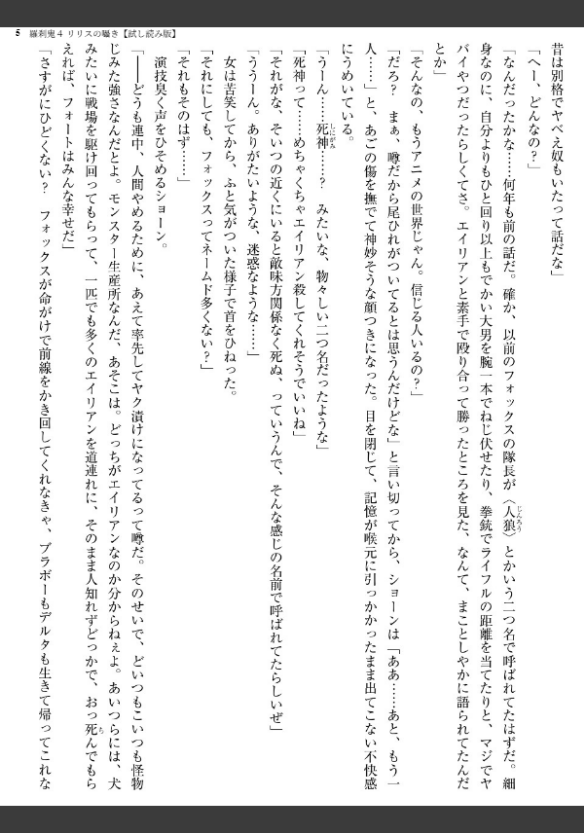 5 羅刹鬼４ リリスの囁き【試し読み版】
昔は別格でヤベえ奴もいたって話だな」
「へー、どんなの？」
「なんだったかな……何年も前の話だ。確か、以前のフォックスの隊長が〈人狼〉とかいう二つ名で呼ばれてたはずだ。細
身なのに、自分よりもひと回り以上もでかい大男を腕一本でねじ伏せたり、拳銃でライフルの距離を当てたりと、マジでヤ
バイやつだったらしくてさ。エイリアンと素手で殴り合って勝ったところを見た、なんて、まことしやかに語られてたんだ
とか」
「そんなの、もうアニメの世界じゃん。信じる人いるの？」
「だろ？　まぁ、噂だから尾ひれがついてるとは思うんだけどな」と言い切ってから、ショーンは「ああ……あと、もう一
人……」と、あごの傷を撫でて神妙そうな顔つきになった。目を閉じて、記憶が喉元に引っかかったまま出てこない不快感
にうめいている。
「うーん……死神……？　みたいな、物々しい二つ名だったような」
「死神って……めちゃくちゃエイリアン殺してくれそうでいいね」
「それがな、そいつの近くにいると敵味方関係なく死ぬ、っていうんで、そんな感じの名前で呼ばれてたらしいぜ」
「ううーん。ありがたいような、迷惑なような……」
女は苦笑してから、ふと気がついた様子で首をひねった。
「それにしても、フォックスってネームド多くない？」
「それもそのはず……」
演技臭く声をひそめるショーン。
「――どうも連中、人間やめるために、あえて率先してヤク漬けになってるって噂だ。そのせいで、どいつもこいつも怪物
じみた強さなんだとよ。モンスター生産所なんだ、あそこは。どっちがエイリアンなのか分からねぇよ。あいつらには、犬
みたいに戦場を駆け回ってもらって、一匹でも多くのエイリアンを道連れに、そのまま人知れずどっかで、おっ死んでもら
えれば、フォートはみんな幸せだ」
「さすがにひどくない？　フォックスが命がけで前線をかき回してくれなきゃ、ブラボーもデルタも生きて帰ってこれな